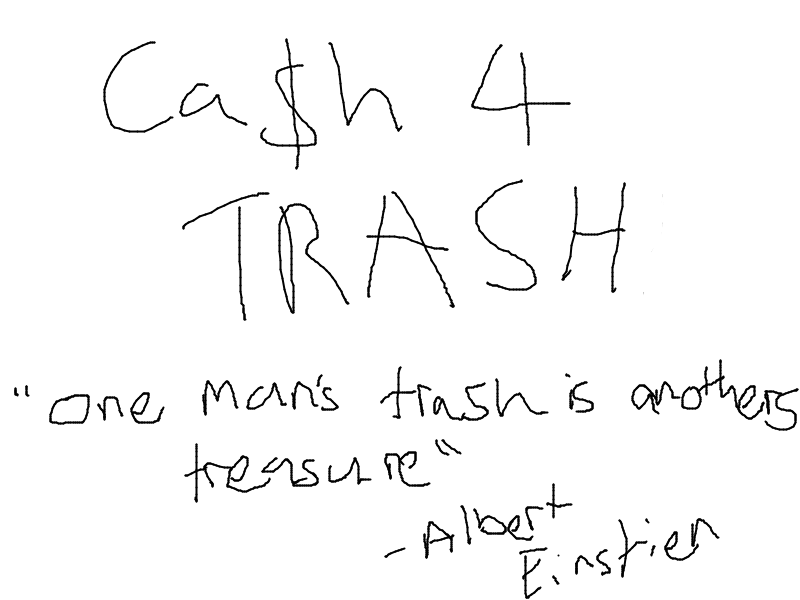 Ca$h 4
TRASH
"one man's trash is anothers
treasure"
- Albert
Einstien